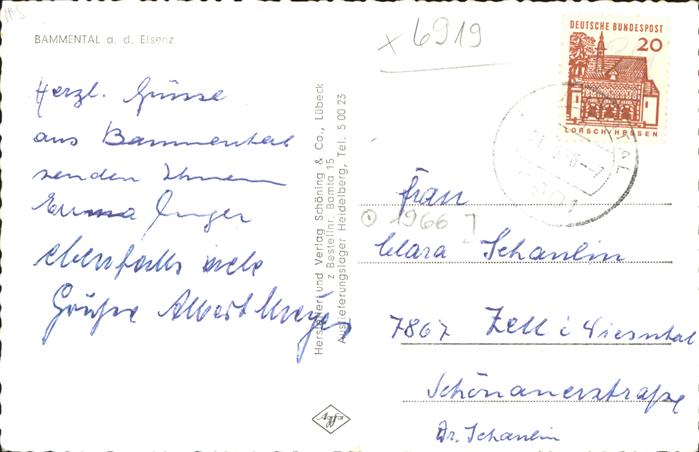 BAMMENTAL a. d. Elsenz
Herzl. Grüsse
aus Bammental
senden Ihnen
Emma Unger
ebenfalls viele
Grüße Albert Meyer
Hersteller und Verlag Schöning & Co., Lübeck
z Bestellnr. Bamta 15
Auslieferungslager Heidelberg, Tel. 5 00 23
x 6919
DEUTSCHE BUNDESPOST
20
LORSCH/HESSEN
1966
Frau
Clara Schanlin
7867 Zell i Wiesental
Schönauerstraße
Dr. Schanlin